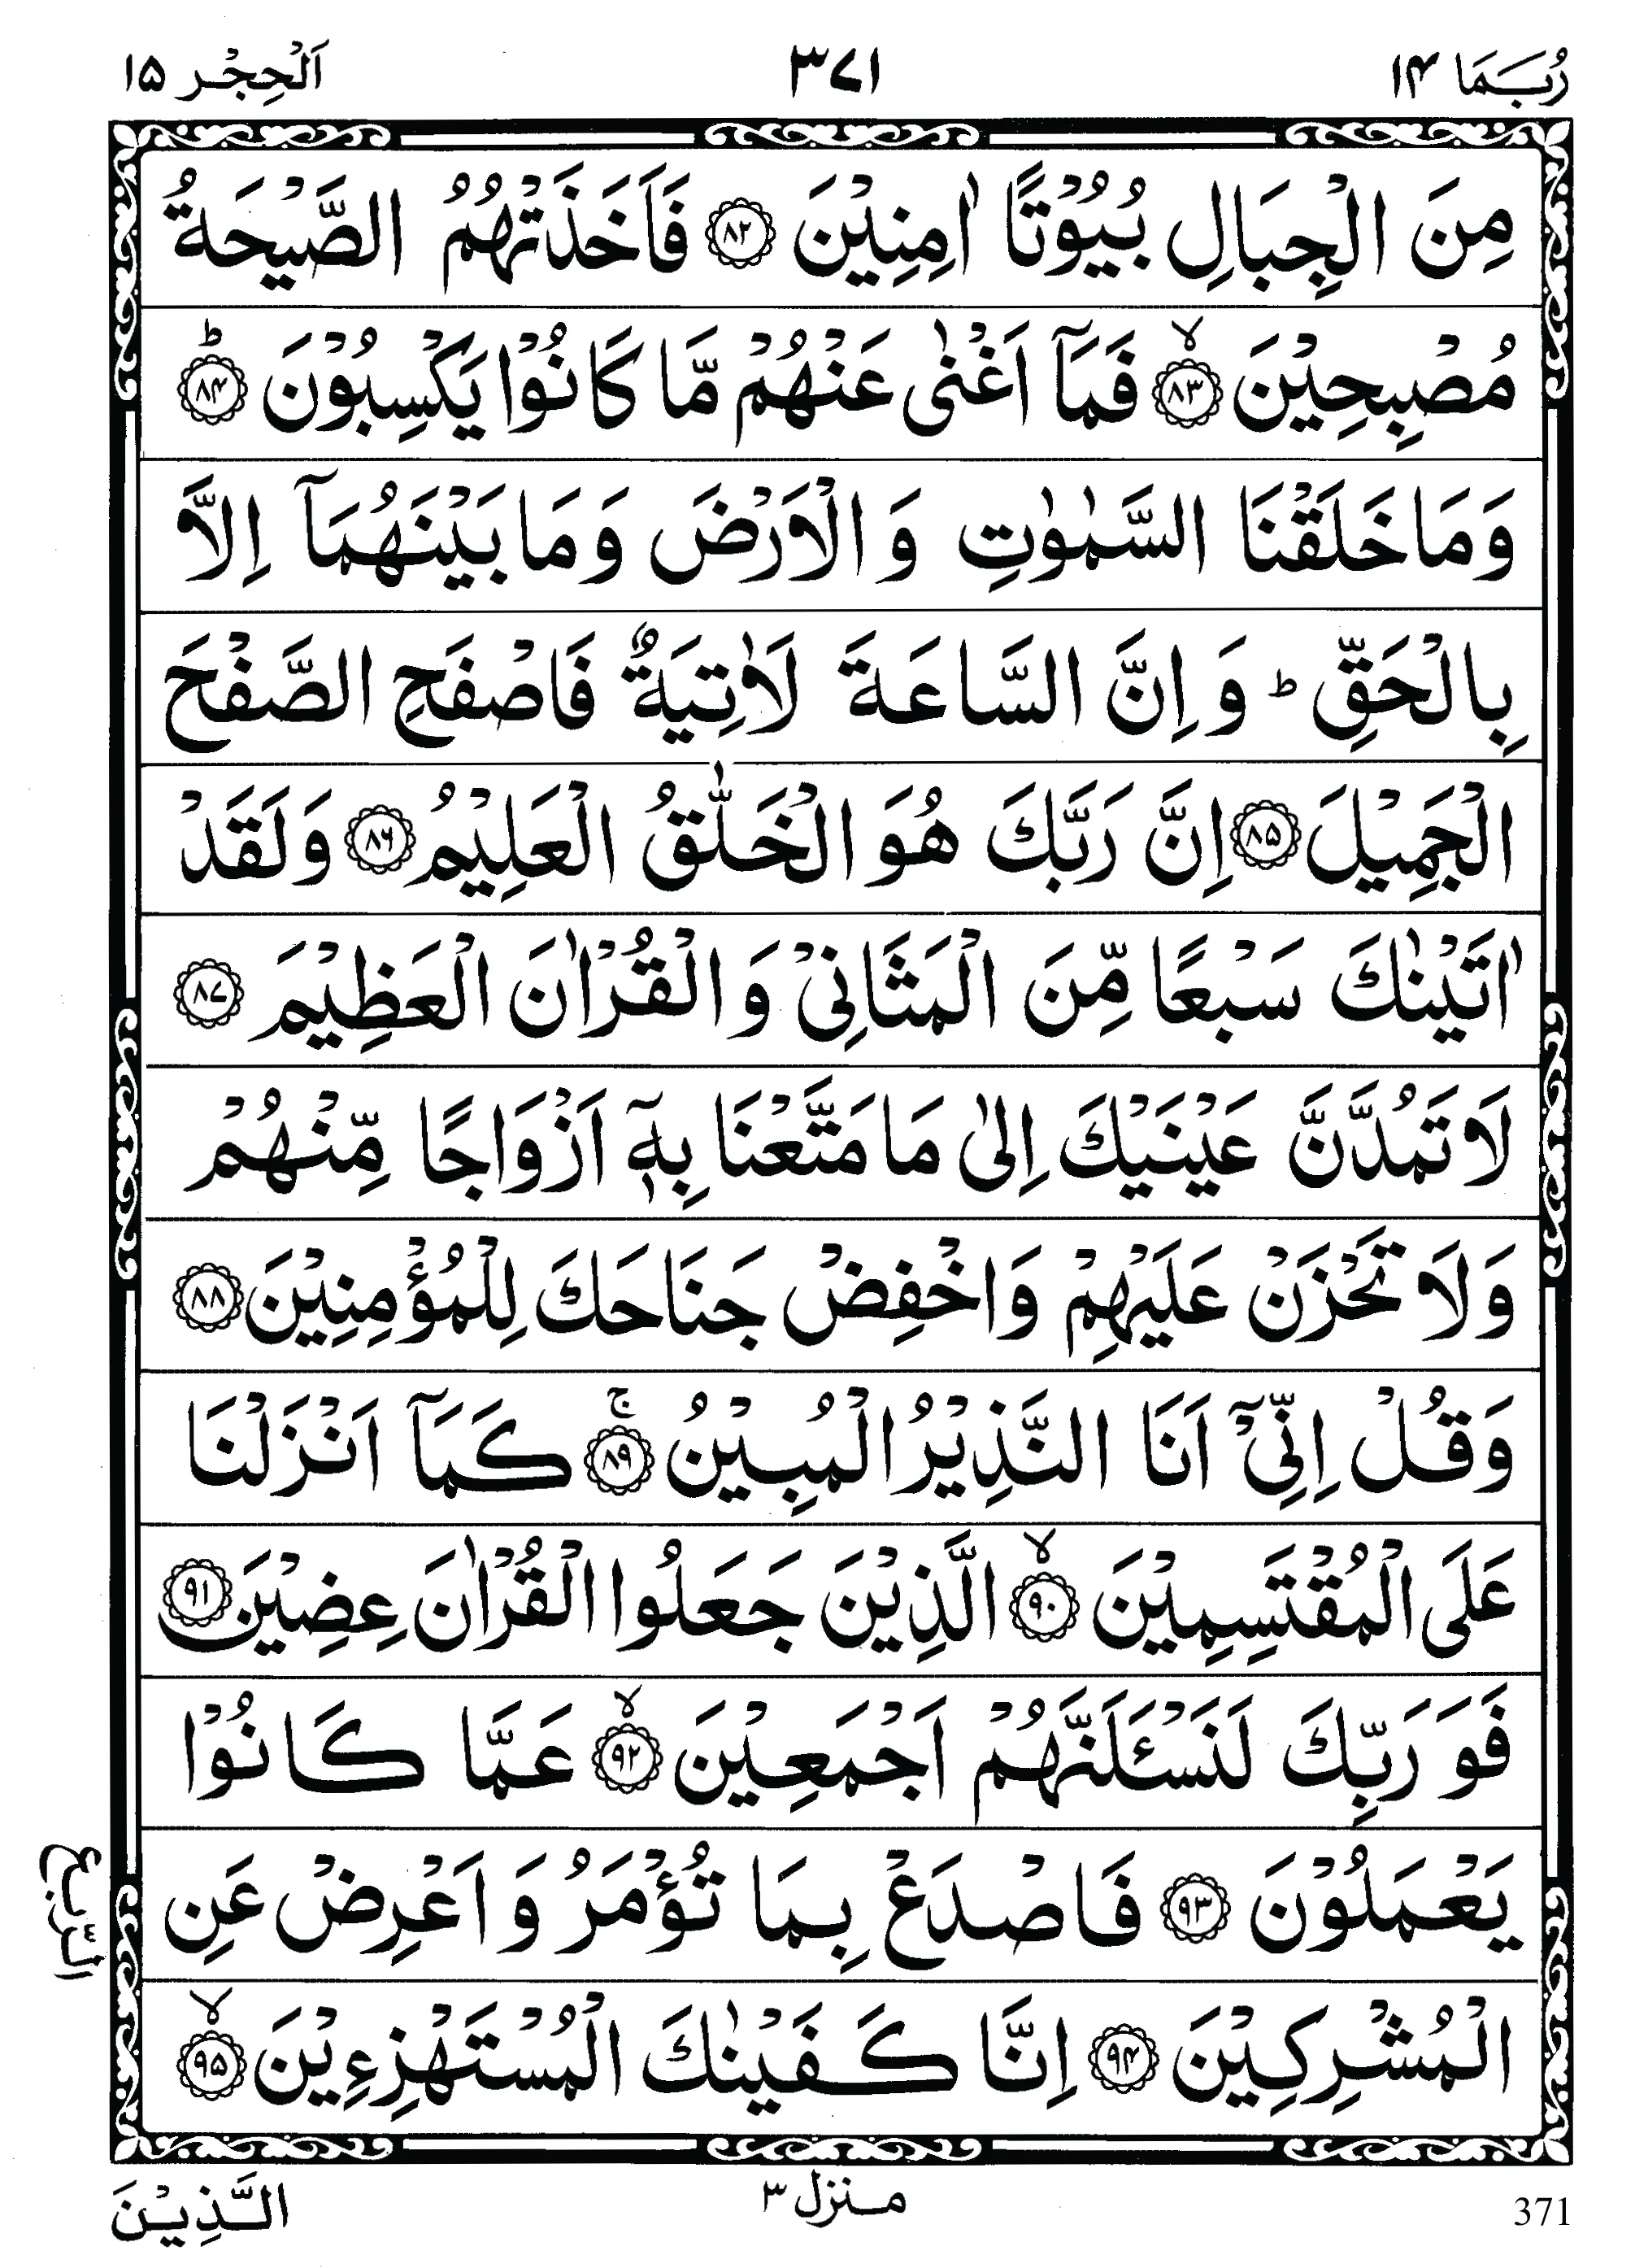 رُبَمَا ۱۴
۳۷۱
اَلْحِجْر ۱۵
مِنَ الْجِبَالِ بُيُوْتًا اٰمِنِيْنَ ﴿۸۲﴾ فَاَخَذَتْهُمُ الصَّيْحَةُ
مُصْبِحِيْنَ ﴿۸۳﴾ۙ فَمَاۤ اَغْنٰى عَنْهُمْ مَّا كَانُوْا يَكْسِبُوْنَ ﴿۸۴﴾ؕ
وَمَا خَلَقْنَا السَّمٰوٰتِ وَالْاَرْضَ وَمَا بَيْنَهُمَاۤ اِلَّا
بِالْحَقِّ ؕ وَاِنَّ السَّاعَةَ لَاٰتِيَةٌ فَاصْفَحِ الصَّفْحَ
الْجَمِيْلَ ﴿۸۵﴾ اِنَّ رَبَّكَ هُوَ الْخَلّٰقُ الْعَلِيْمُ ﴿۸۶﴾ وَلَقَدْ
اٰتَيْنٰكَ سَبْعًا مِّنَ الْمَثَانِيْ وَالْقُرْاٰنَ الْعَظِيْمَ ﴿۸۷﴾
لَا تَمُدَّنَّ عَيْنَيْكَ اِلٰى مَا مَتَّعْنَا بِهٖۤ اَزْوَاجًا مِّنْهُمْ
وَلَا تَحْزَنْ عَلَيْهِمْ وَاخْفِضْ جَنَاحَكَ لِلْمُؤْمِنِيْنَ ﴿۸۸﴾
وَقُلْ اِنِّيْۤ اَنَا النَّذِيْرُ الْمُبِيْنُ ﴿۸۹﴾ۚ كَمَاۤ اَنْزَلْنَا
عَلَى الْمُقْتَسِمِيْنَ ﴿۹۰﴾ۙ الَّذِيْنَ جَعَلُوا الْقُرْاٰنَ عِضِيْنَ ﴿۹۱﴾
فَوَرَبِّكَ لَنَسْـَٔلَنَّهُمْ اَجْمَعِيْنَ ﴿۹۲﴾ۙ عَمَّا كَانُوْا
يَعْمَلُوْنَ ﴿۹۳﴾ فَاصْدَعْ بِمَا تُؤْمَرُ وَاَعْرِضْ عَنِ
الْمُشْرِكِيْنَ ﴿۹۴﴾ اِنَّا كَفَيْنٰكَ الْمُسْتَهْزِءِيْنَ ﴿۹۵﴾ۙ
الرّبع
371
منزل ۳
الَّذِيْنَ